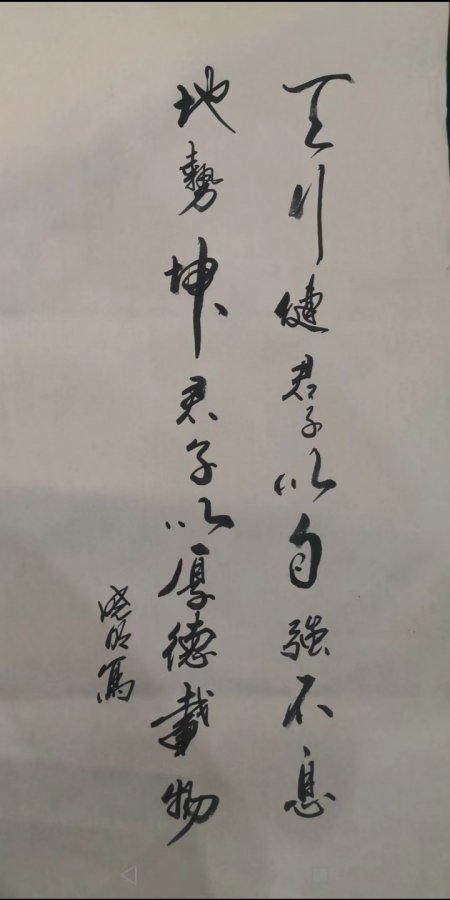 天行健君子以自強不息
地勢坤君子以厚德載物
晓明寫